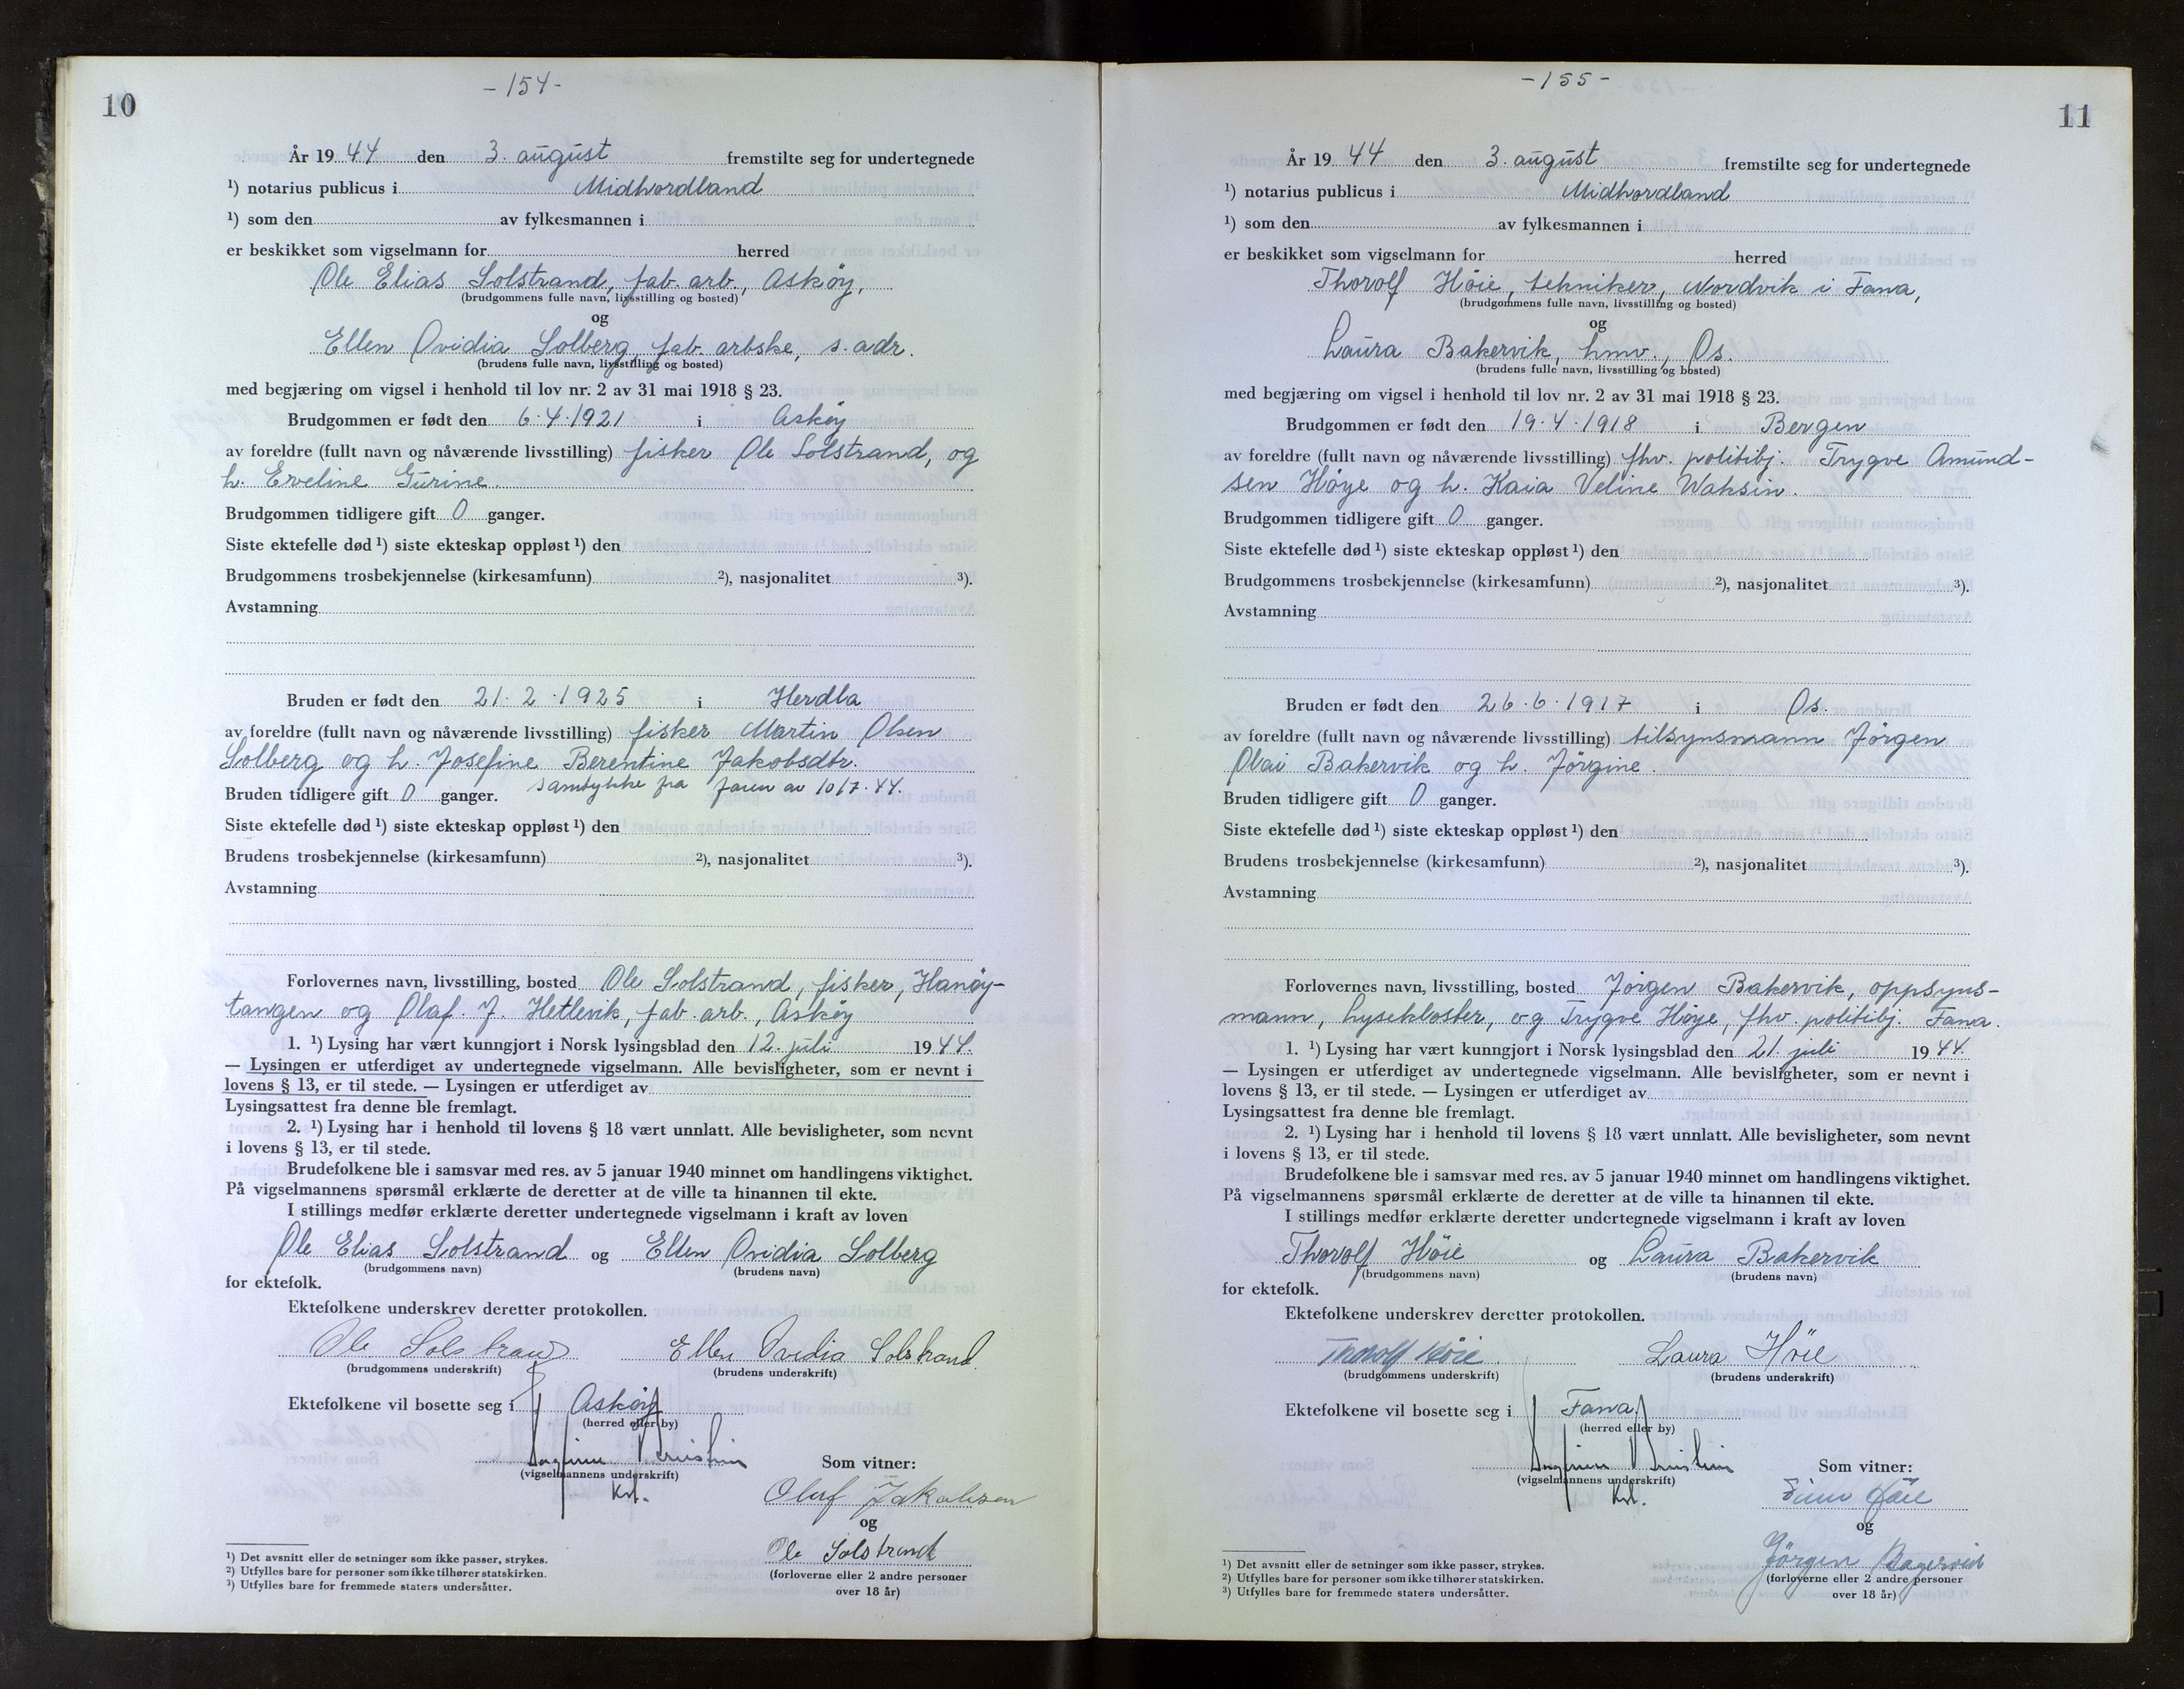 10
-154-
År 1944 den 3. august fremstilte seg for undertegnede
¹) notarius publicus i Midhordland
¹) som den av fylkesmannen i
er beskikket som vigselmann for herred
Ole Elias Solstrand, fab. arb., Askøy,
(brudgommens fulle navn, livsstilling og bosted)
og
Ellen Ovidia Solberg, fab. arbske, s. adr.
(brudens fulle navn, livsstilling og bosted)
med begjæring om vigsel i henhold til lov nr. 2 av 31 mai 1918 § 23.
Brudgommen er født den 6.4.1921 i Askøy
av foreldre (fullt navn og nåværende livsstilling) fisker Ole Solstrand, og
h. Eveline Gurine.
Brudgommen tidligere gift 0 ganger.
Siste ektefelle død ¹) siste ekteskap oppløst ¹) den
Brudgommens trosbekjennelse (kirkesamfunn) ²), nasjonalitet ³).
Avstamning
Bruden er født den 21.2.1925 i Herdla
av foreldre (fullt navn og nåværende livsstilling) fisker Martin Olsen
Solberg og h. Josefine Berentine Jakobsdtr.
Bruden tidligere gift 0 ganger. samtykke fra faren av 10/7.44.
Siste ektefelle død ¹) siste ekteskap oppløst ¹) den
Brudens trosbekjennelse (kirkesamfunn) ²), nasjonalitet ³).
Avstamning
Forlovernes navn, livsstilling, bosted Ole Solstrand, fisker, Hanøy-
tangen og Olaf. J. Hetlevik, fab. arb., Askøy
1. ¹) Lysing har vært kunngjort i Norsk lysingsblad den 12. juli 1944.
— Lysingen er utferdiget av undertegnede vigselmann. Alle bevisligheter, som er nevnt i
lovens § 13, er til stede. — Lysingen er utferdiget av
Lysingsattest fra denne ble fremlagt.
2. ¹) Lysing har i henhold til lovens § 18 vært unnlatt. Alle bevisligheter, som nevnt
i lovens § 13, er til stede.
Brudefolkene ble i samsvar med res. av 5 januar 1940 minnet om handlingens viktighet.
På vigselmannens spørsmål erklærte de deretter at de ville ta hinannen til ekte.
I stillings medfør erklærte deretter undertegnede vigselmann i kraft av loven
Ole Elias Solstrand og Ellen Ovidia Solberg
(brudgommens navn) (brudens navn)
for ektefolk.
Ektefolkene underskrev deretter protokollen.
Ole Solstrand Ellen Ovidia Solstrand
(brudgommens underskrift) (brudens underskrift)
Ektefolkene vil bosette seg i Askøy
(herred eller by)
(vigselmannens underskrift)
Kst.
Som vitner:
Olaf Jakobsen
og
Ole Solstrand
(forloverne eller 2 andre personer
over 18 år)
¹) Det avsnitt eller de setninger som ikke passer, strykes.
²) Utfylles bare for personer som ikke tilhører statskirken.
³) Utfylles bare for fremmede staters undersåtter.
11
-155-
År 1944 den 3. august fremstilte seg for undertegnede
¹) notarius publicus i Midhordland
¹) som den av fylkesmannen i
er beskikket som vigselmann for herred
Thorolf Høie, tekniker, Nordvik i Fana,
(brudgommens fulle navn, livsstilling og bosted)
og
Laura Bakervik, hmv., Os.
(brudens fulle navn, livsstilling og bosted)
med begjæring om vigsel i henhold til lov nr. 2 av 31 mai 1918 § 23.
Brudgommen er født den 19.4.1918 i Bergen
av foreldre (fullt navn og nåværende livsstilling) fhv. politibj. Trygve Amund-
sen Høye og h. Kaia Veline Waksin.
Brudgommen tidligere gift 0 ganger.
Siste ektefelle død ¹) siste ekteskap oppløst ¹) den
Brudgommens trosbekjennelse (kirkesamfunn) ²), nasjonalitet ³).
Avstamning
Bruden er født den 26.6.1917 i Os.
av foreldre (fullt navn og nåværende livsstilling) tilsynsmann Jørgen
Olai Bakervik og h. Jørgine.
Bruden tidligere gift 0 ganger.
Siste ektefelle død ¹) siste ekteskap oppløst ¹) den
Brudens trosbekjennelse (kirkesamfunn) ²), nasjonalitet ³).
Avstamning
Forlovernes navn, livsstilling, bosted Jørgen Bakervik, oppsyns-
mann, Lysekloster, og Trygve Høye, fhv. politibj. Fana.
1. ¹) Lysing har vært kunngjort i Norsk lysingsblad den 21. juli 1944.
— Lysingen er utferdiget av undertegnede vigselmann. Alle bevisligheter, som er nevnt i
lovens § 13, er til stede. — Lysingen er utferdiget av
Lysingsattest fra denne ble fremlagt.
2. ¹) Lysing har i henhold til lovens § 18 vært unnlatt. Alle bevisligheter, som nevnt
i lovens § 13, er til stede.
Brudefolkene ble i samsvar med res. av 5 januar 1940 minnet om handlingens viktighet.
På vigselmannens spørsmål erklærte de deretter at de ville ta hinannen til ekte.
I stillings medfør erklærte deretter undertegnede vigselmann i kraft av loven
Thorolf Høie og Laura Bakervik
(brudgommens navn) (brudens navn)
for ektefolk.
Ektefolkene underskrev deretter protokollen.
Thorolf Höie. Laura Höie
(brudgommens underskrift) (brudens underskrift)
Ektefolkene vil bosette seg i Fana.
(herred eller by)
(vigselmannens underskrift)
Kst.
Som vitner:
og
Jørgen
(forloverne eller 2 andre personer
over 18 år)
¹) Det avsnitt eller de setninger som ikke passer, strykes.
²) Utfylles bare for personer som ikke tilhører statskirken.
³) Utfylles bare for fremmede staters undersåtter.